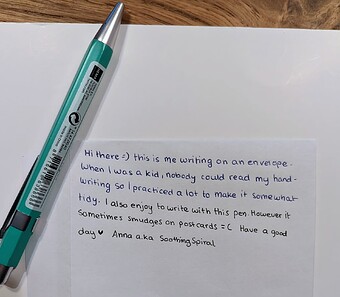 Hi there =) this is me writing on an envelope.
When I was a kid, nobody could read my hand-
writing so I practiced a lot to make it somewhat
tidy. I also enjoy to write with this pen. However it
sometimes smudges on postcards =( Have a good
day ♥ Anna a.k.a SoothingSpiral